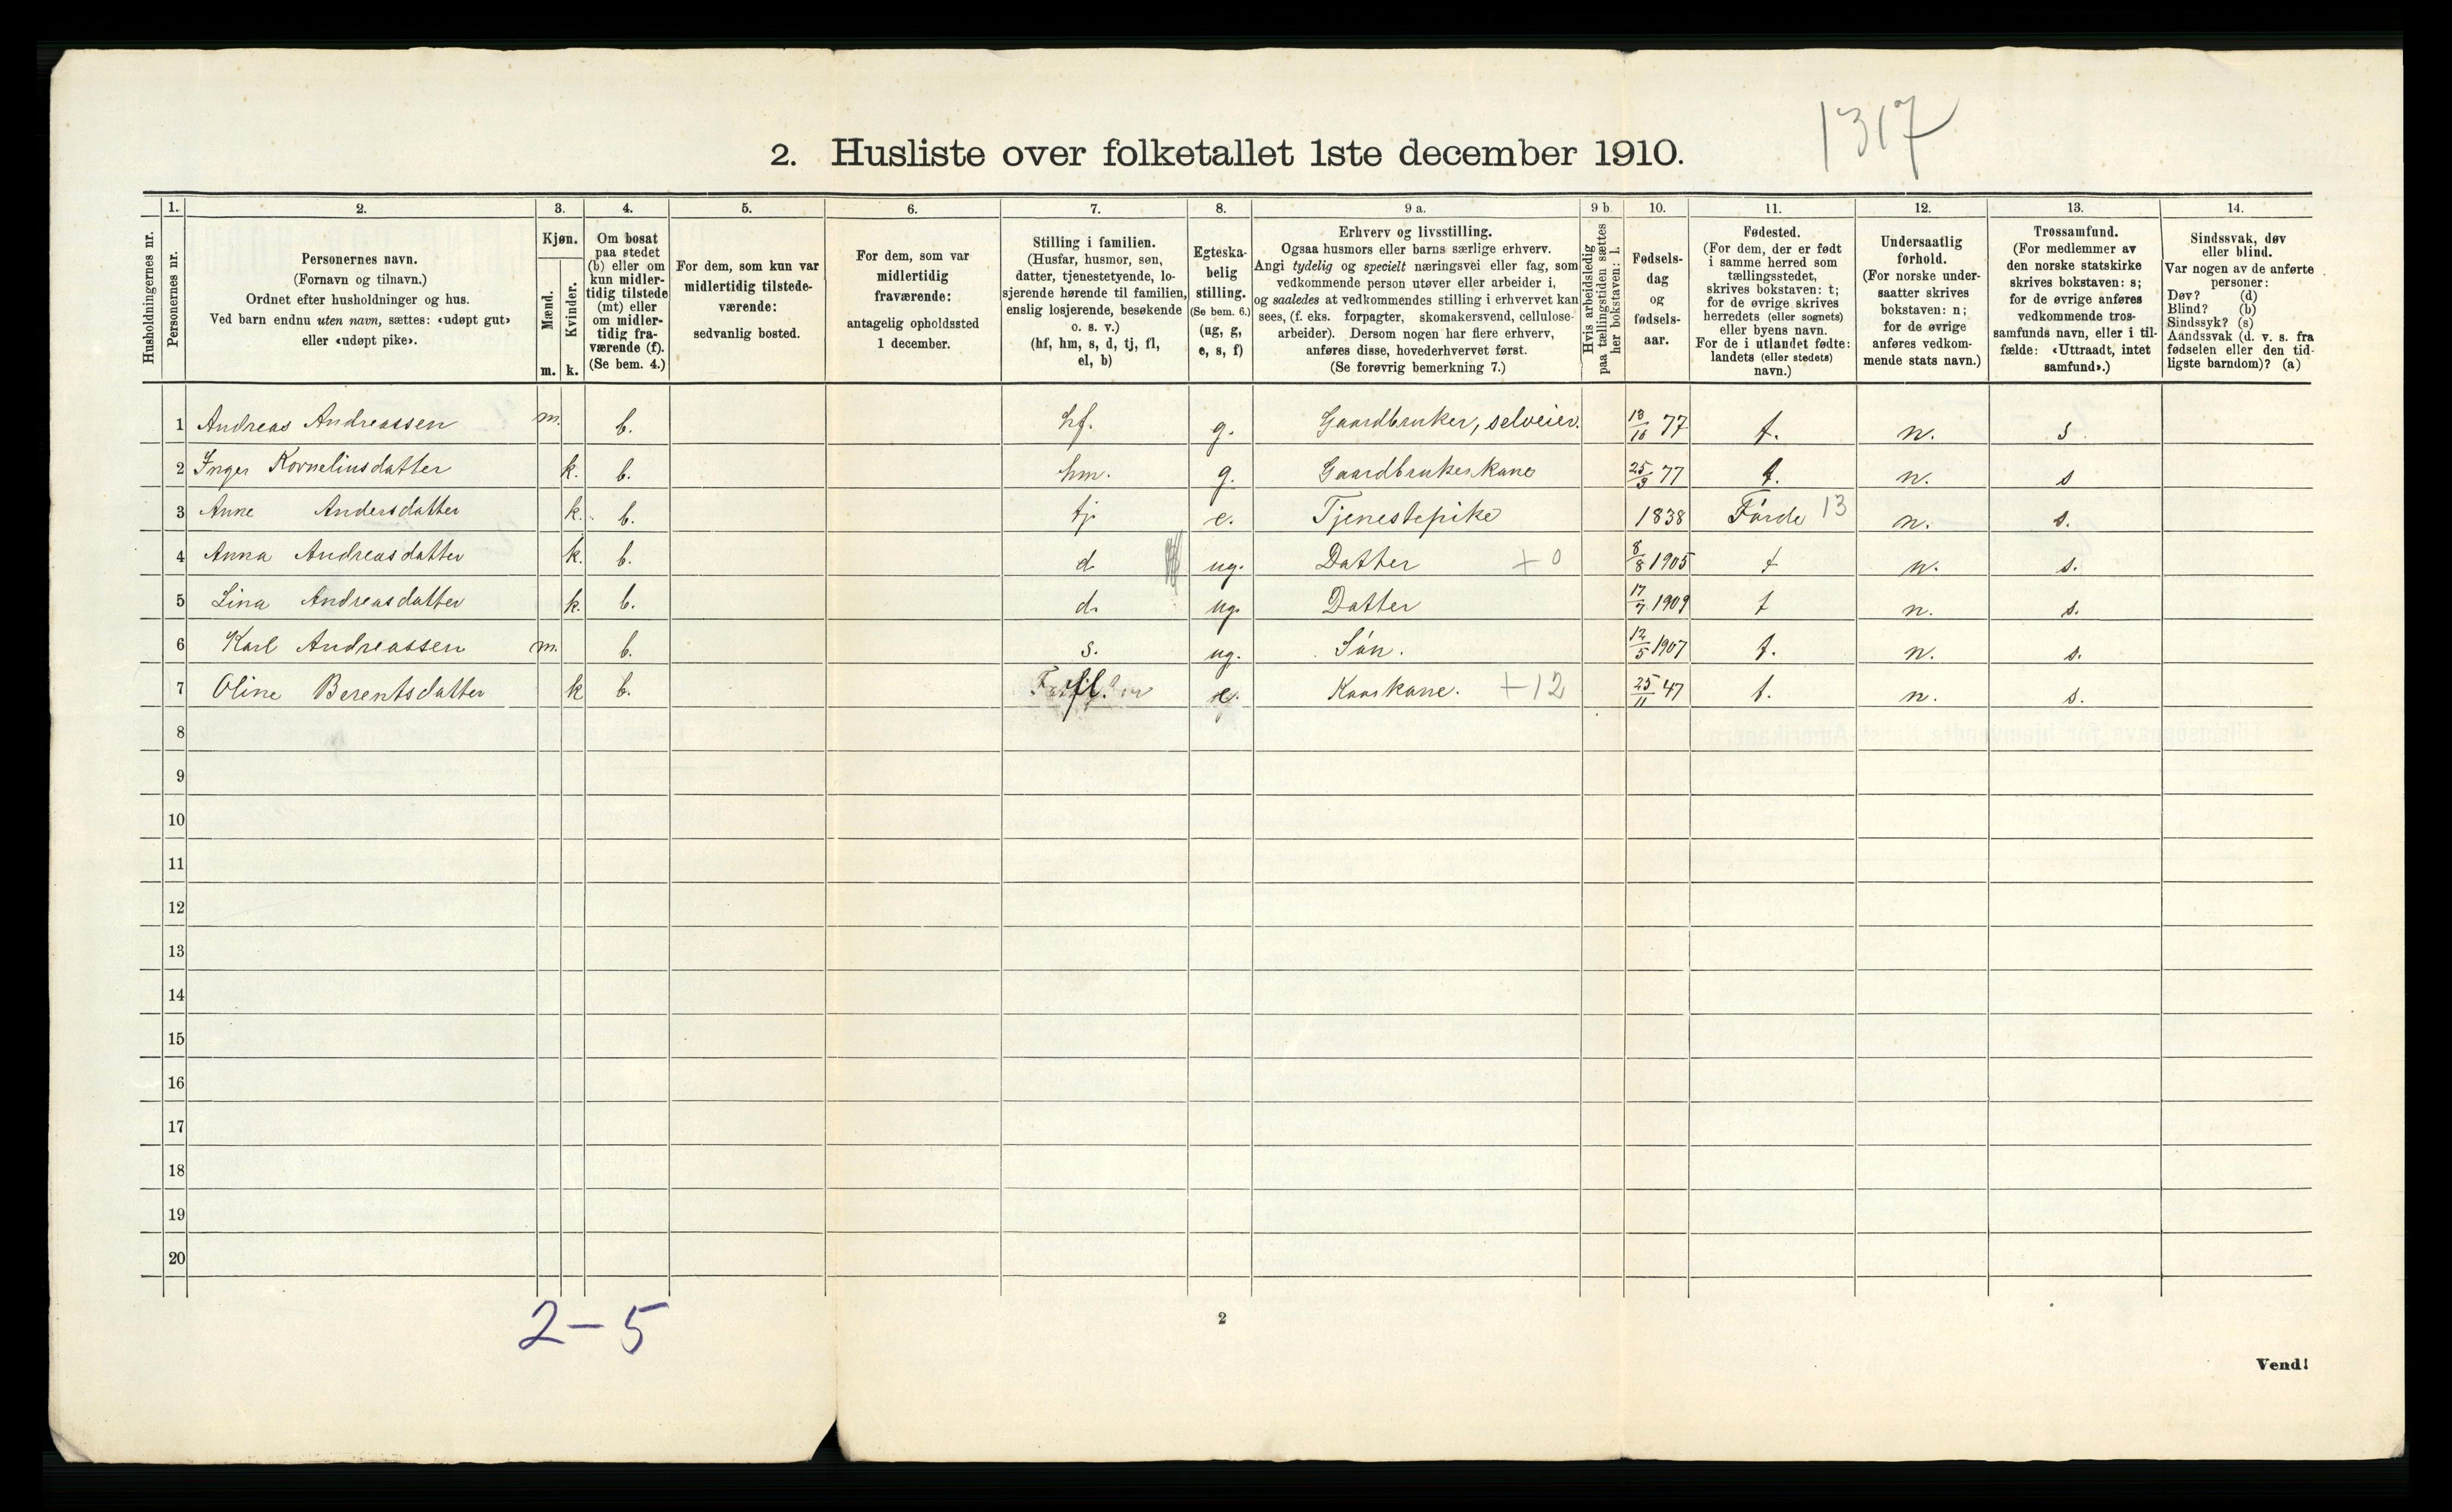 1317
2. Husliste over folketallet 1ste december 1910.
1. 2. 3. 4. 5. 6. 7. 8. 9 a. 9 b. 10. 11. 12. 13. 14.
Husholdningernes nr.
Personernes nr.
Personernes navn.
(Fornavn og tilnavn.)
Ordnet efter husholdninger og hus.
Ved barn endnu uten navn, sættes: «udøpt gut»
eller «udøpt pike».
Kjøn.
Mænd.
Kvinder.
m. k.
Om bosat
paa stedet
(b) eller om
kun midler-
tidig tilstede
(mt) eller
om midler-
tidig fra-
værende (f).
(Se bem. 4.)
For dem, som kun var
midlertidig tilstede-
værende:
sedvanlig bosted.
For dem, som var
midlertidig
fraværende:
antagelig opholdssted
1 december.
Stilling i familien.
(Husfar, husmor, søn,
datter, tjenestetyende, lo-
sjerende hørende til familien,
enslig losjerende, besøkende
o. s. v.)
(hf, hm, s, d, tj, fl,
el, b)
Egteska-
belig
stilling.
(Se bem. 6.)
(ug, g,
e, s, f)
Erhverv og livsstilling.
Ogsaa husmors eller barns særlige erhverv.
Angi tydelig og specielt næringsvei eller fag, som
vedkommende person utøver eller arbeider i,
og saaledes at vedkommendes stilling i erhvervet kan
sees, (f. eks. forpagter, skomakersvend, cellulose-
arbeider). Dersom nogen har flere erhverv,
anføres disse, hovederhvervet først.
(Se forøvrig bemerkning 7.)
Hvis arbeidsledig
paa tællingstiden sættes
her bokstaven: l.
Fødsels-
dag
og
fødsels-
aar.
Fødested.
(For dem, der er født
i samme herred som
tællingsstedet,
skrives bokstaven: t;
for de øvrige skrives
herredets (eller sognets)
eller byens navn.
For de i utlandet fødte:
landets (eller stedets)
navn.)
Undersaatlig
forhold.
(For norske under-
saatter skrives
bokstaven: n;
for de øvrige
anføres vedkom-
mende stats navn.)
Trossamfund.
(For medlemmer av
den norske statskirke
skrives bokstaven: s;
for de øvrige anføres
vedkommende tros-
samfunds navn, eller i til-
fælde: «Uttraadt, intet
samfund».)
Sindssvak, døv
eller blind.
Var nogen av de anførte
personer:
Døv? (d)
Blind? (b)
Sindssyk? (s)
Aandssvak (d. v. s. fra
fødselen eller den tid-
ligste barndom)? (a)
1 Andreas Andreassen m. b. hf. g. Gaardbruker, selveier. 13/10 77 t. n. s
2 Inger Kornelius datter k. b. hm. g. Gaardbrukerkane 25/9 77 t. n. s
3 Anne Andersdatter k. b. tj. e. Tjenestepike 1838 Førde 13 n. s.
4 Anna Andreasdatter k. b. d. ug. Datter + 0 8/8 1905 t n. s.
5 Lina Andreasdatter k. b. d. ug. Datter 17/7 1909 t n. s.
6 Karl Andreassen m. b. s. ug. Søn. 12/5 1907 t. n. s.
7 Oline Berentsdatter k b. fl. e. Kaarkane. +12 25/11 47 t. n. s.
8
9
10
11
12
13
14
15
16
17
18
19
20
2-5
2
Vend!